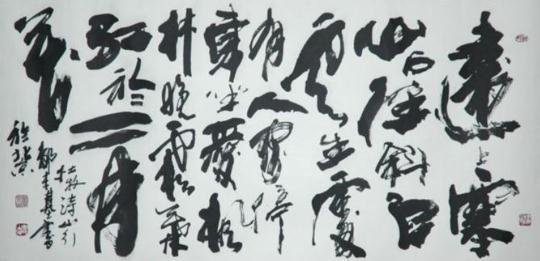 遠上寒
山石徑斜白
雲生處
有人家停
車坐愛楓
林晚霜葉
紅於二月
花
杜牧詩山行
都本基書